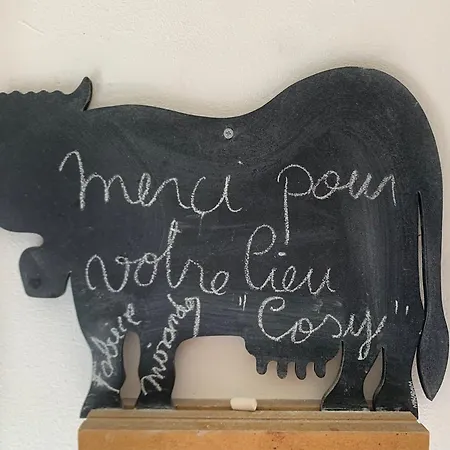 merci pour
votre lieu
"Cosy"
fabiene
mirandy